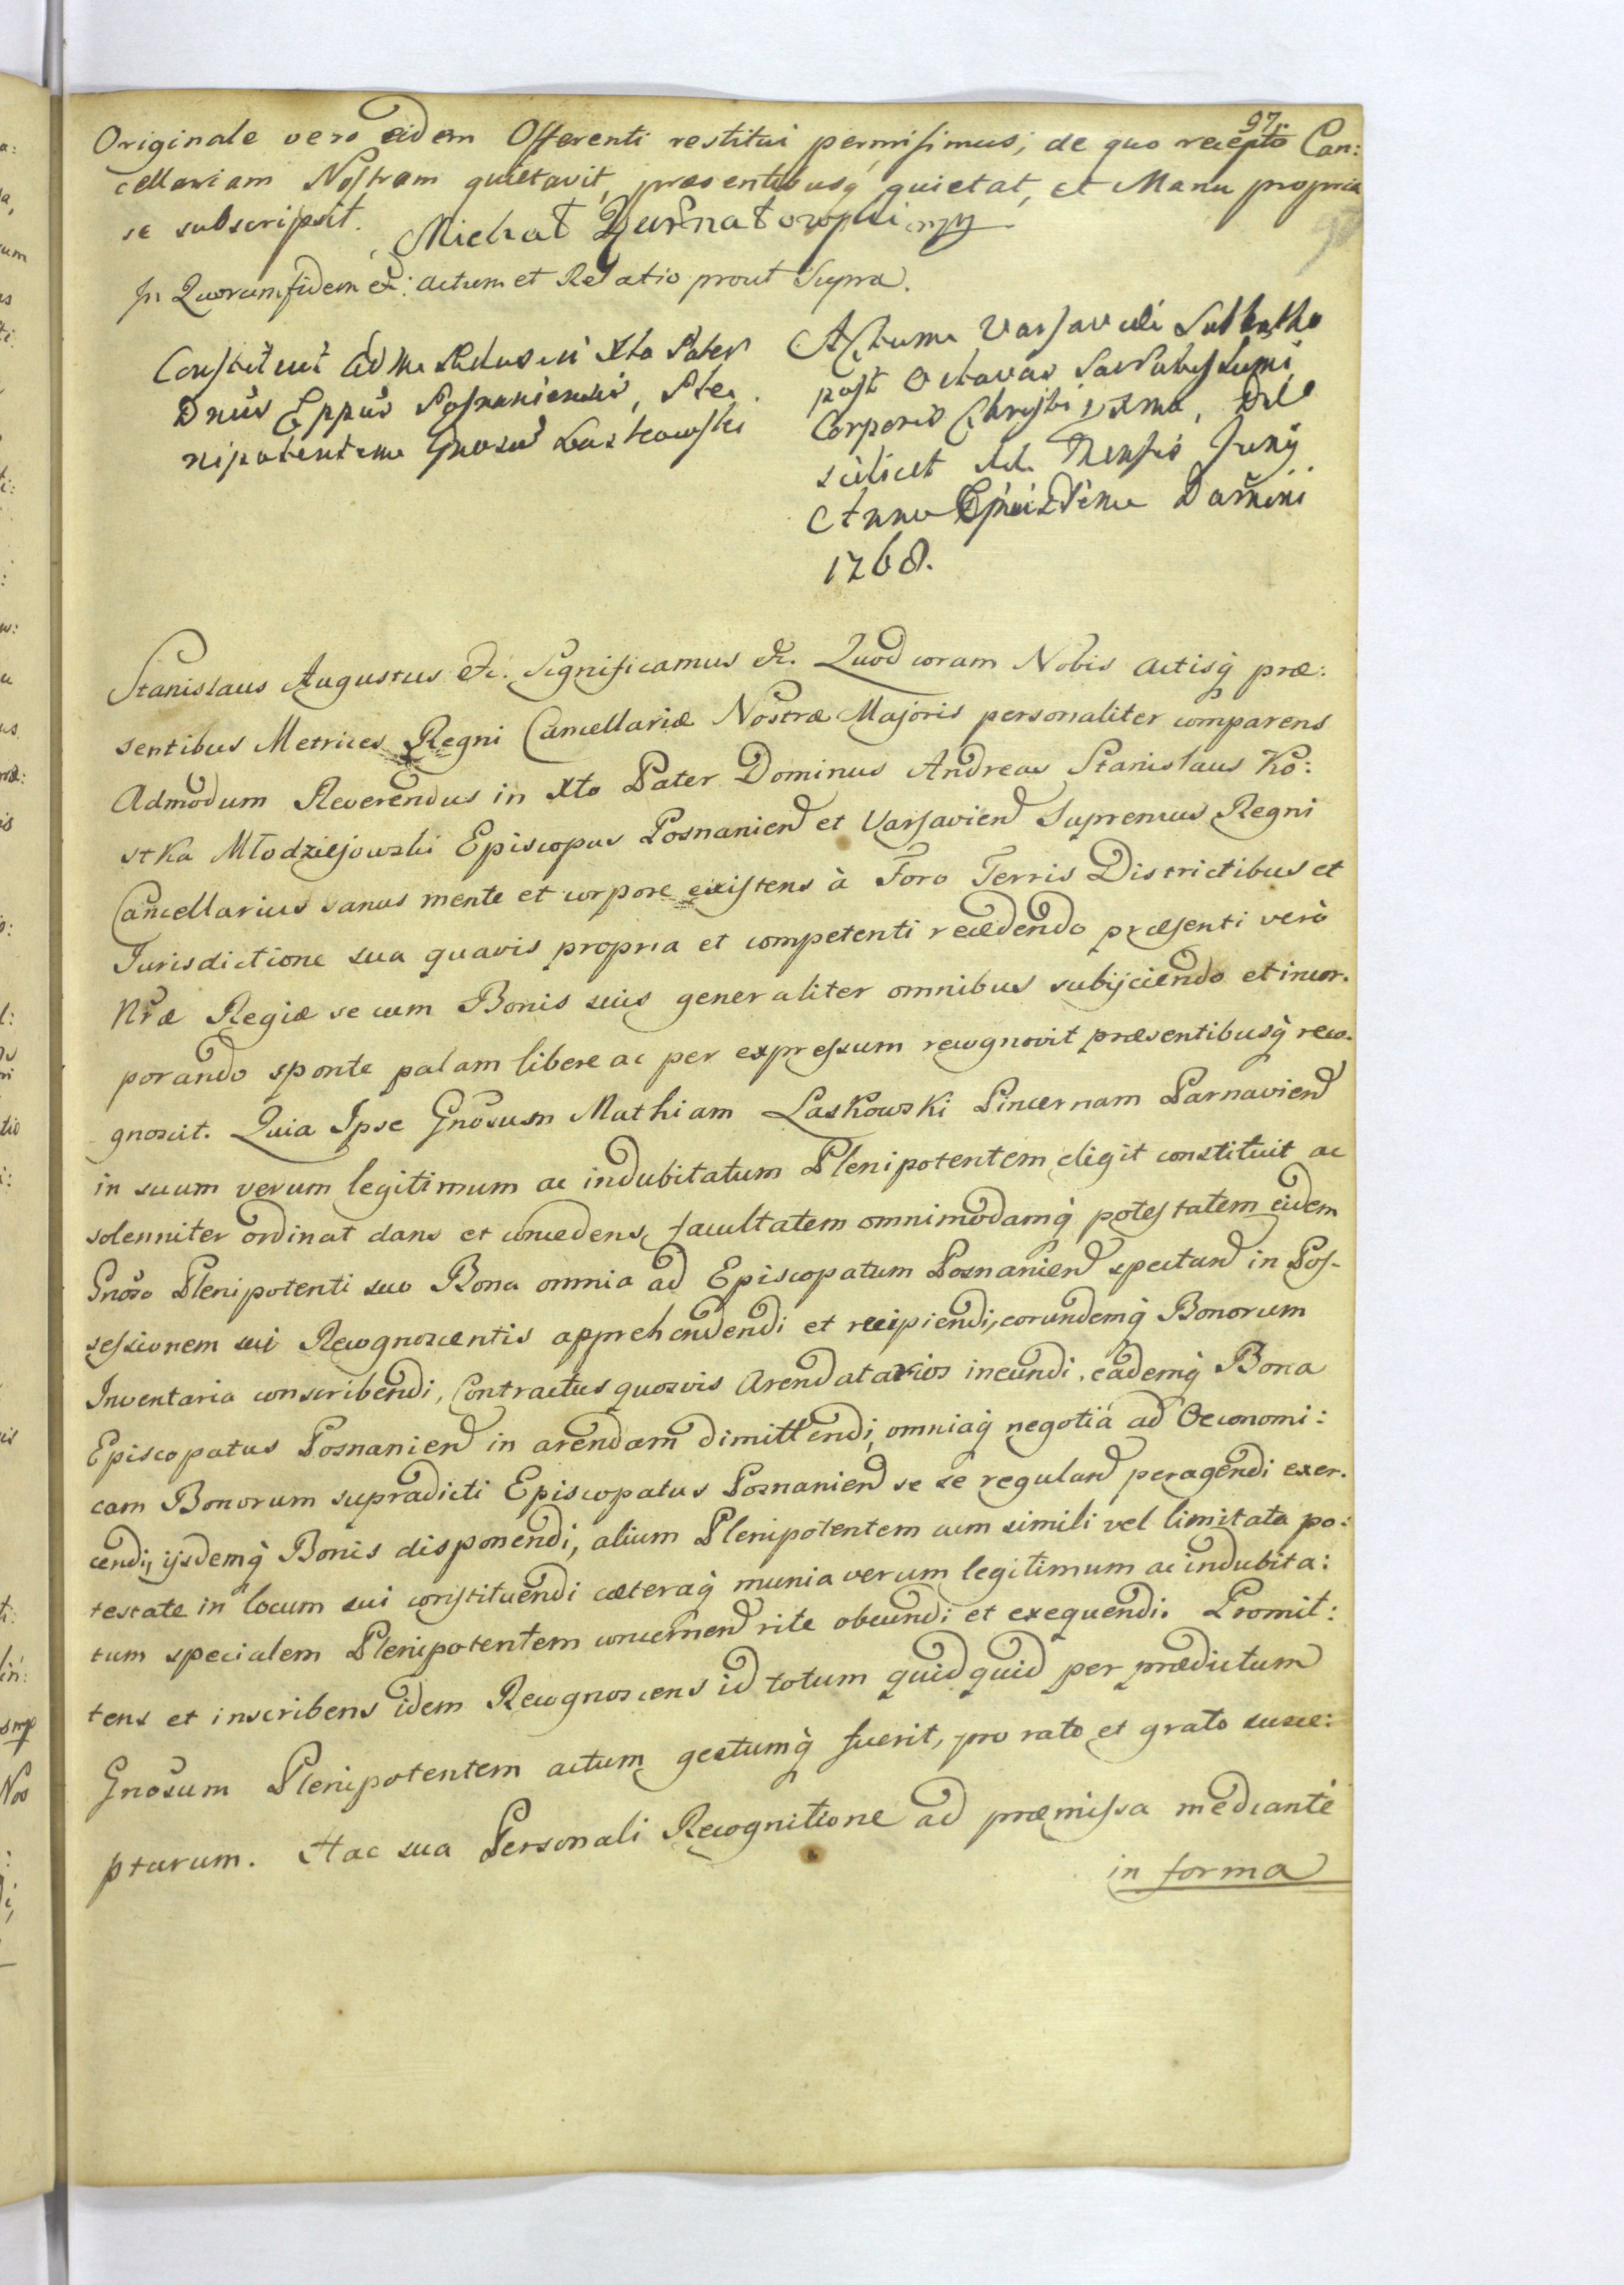 97.
Originale vero eidem Offerenti restitui permisimus, de quo recepto Can:
cellariam Nostram quietavit, praesentibusq̀ quietat, et Manu propria
se subscripsit. Michał mp
In Quorum fidem &: actum et Relatio prout Supra.
Constituit Adm Rdus in Xto Pater
Dnus Eppus Posnaniensis, Ple
nipotentem Gnosum Laskowski
Actum Varsaviae Sabbatho
post Octavas Sacratissimi
Corporis Christi Die
scilicet Mensis Junij
Anno Domini
1768.
Stanislaus Augustus &c. Significamus &c. Quod coram Nobis Actisq̀ præ:
sentibus Metrices Regni Cancellariæ Nostræ Majoris personaliter comparens
Admodum Reverendus in Xto Pater Dominus Andreas Stanislaus Ko:
stka Młodziejowski Episcopus Posnanien et Varsavien Supremus Regni
Cancellarius sanus mente et corpore existens à Foro Terris Districtibus et
Jurisdictione sua quavis propria et competenti recedendo præsenti verò
Nræ Regiæ se cum Bonis suis generaliter omnibus subijciendo et incor.
porando sponte palam libere ac per expressum recognovit præsentibusq̀ reco.
gnoscit. Quia Ipse Gnosum Mathiam Laskowski Pincernam Parnavien
in suum verum legitimum ac indubitatum Plenipotentem eligit constituit ac
solenniter ordinat dans et concedens facultatem omnimodamq̀ potestatem eidem
Gnoso Plenipotenti suo Bona omnia ad Episcopatum Posnanien spectan in Pos-
sessionem sui Recognoscentis apprehendendi et recipiendi, eorundemq̀ Bonorum
Inventaria conscribendi, Contractus quosvis Arendatarios ineundi, eademq̀ Bona
Episcopatus Posnanien in arendam dimittendi, omniaq̀ negotia ad Oeconomi:
cam Bonorum supradicti Episcopatus Posnanien se se regulan peragendi exer.
cendi, ijsdemq̀ Bonis disponendi, alium Plenipotentem cum simili vel limitata po:
testate in locum sui constituendi cæteraq̀ munia verum legitimum ac indubita:
tum specialem Plenipotentem concernen rite obeundi et exequendi. Promit:
tens et inscribens idem Recognoscens id totum quidquid per prædictum
Gnosum Plenipotentem actum gestumq̀ fuerit, pro rato et grato susce:
pturum. Hac sua Personali Recognitione ad præmissa mediante
in forma